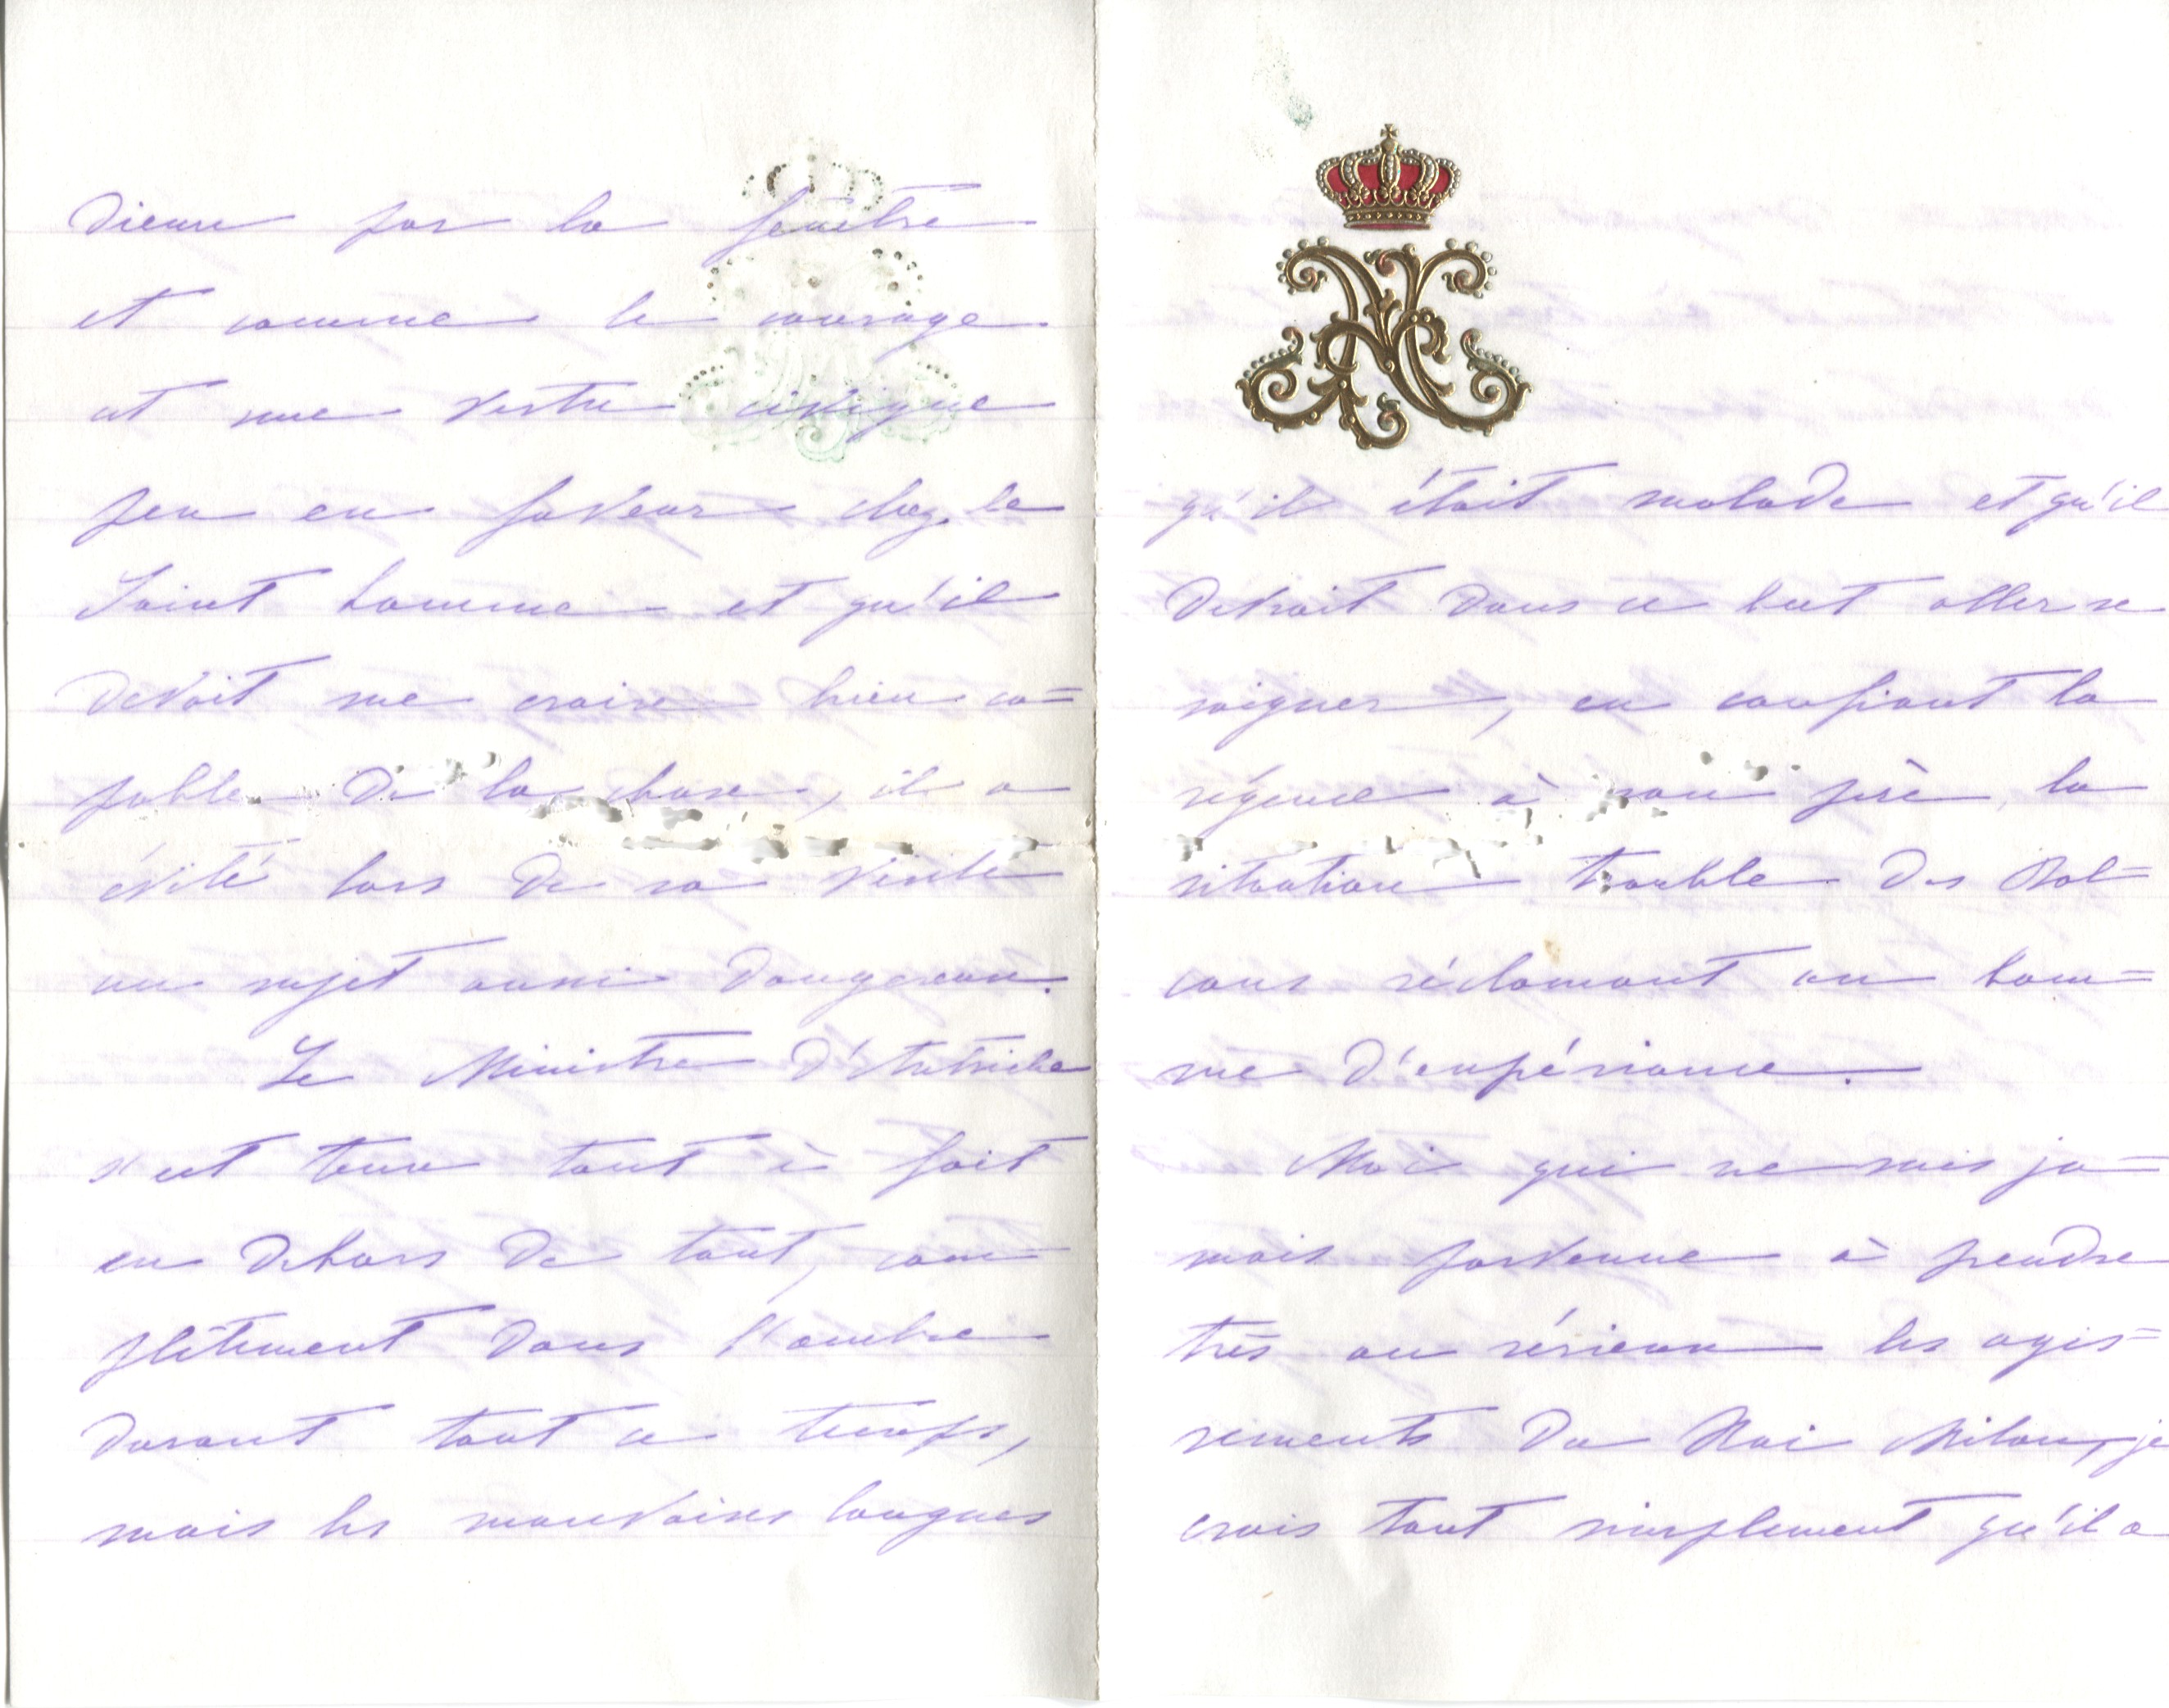 dieux par la fenêtre
et comme le courage
est une vertu civique
peu en faveur chez le
Saint homme et qu'il
devait me croire bien ca=
pable de la chose, il a
évité lors de sa visite
un sujet aussi dangereux.
Le Ministre d'Autriche
s'est tenu tout à fait
en dehors de tout, com
plètement dans l'ombre
durant tout ce temps,
mais les mauvaises langues
qu'il était malade et qu'il
devrait dans ce but aller se
soigner, en confiant la
régence à son père, la
situation trouble des Bal=
cans réclamant un hom=
me d'expérience.
Moi qui ne suis ja=
mais parvenue à prendre
très au sérieux les agis=
sements du Roi Milan, je
crois tout simplement qu'il a